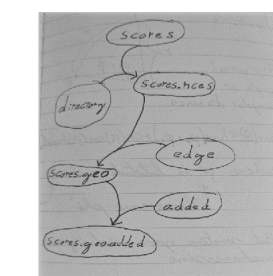 scores
scores.nces
directory
edge
scores.geo
added
scores.geoadded